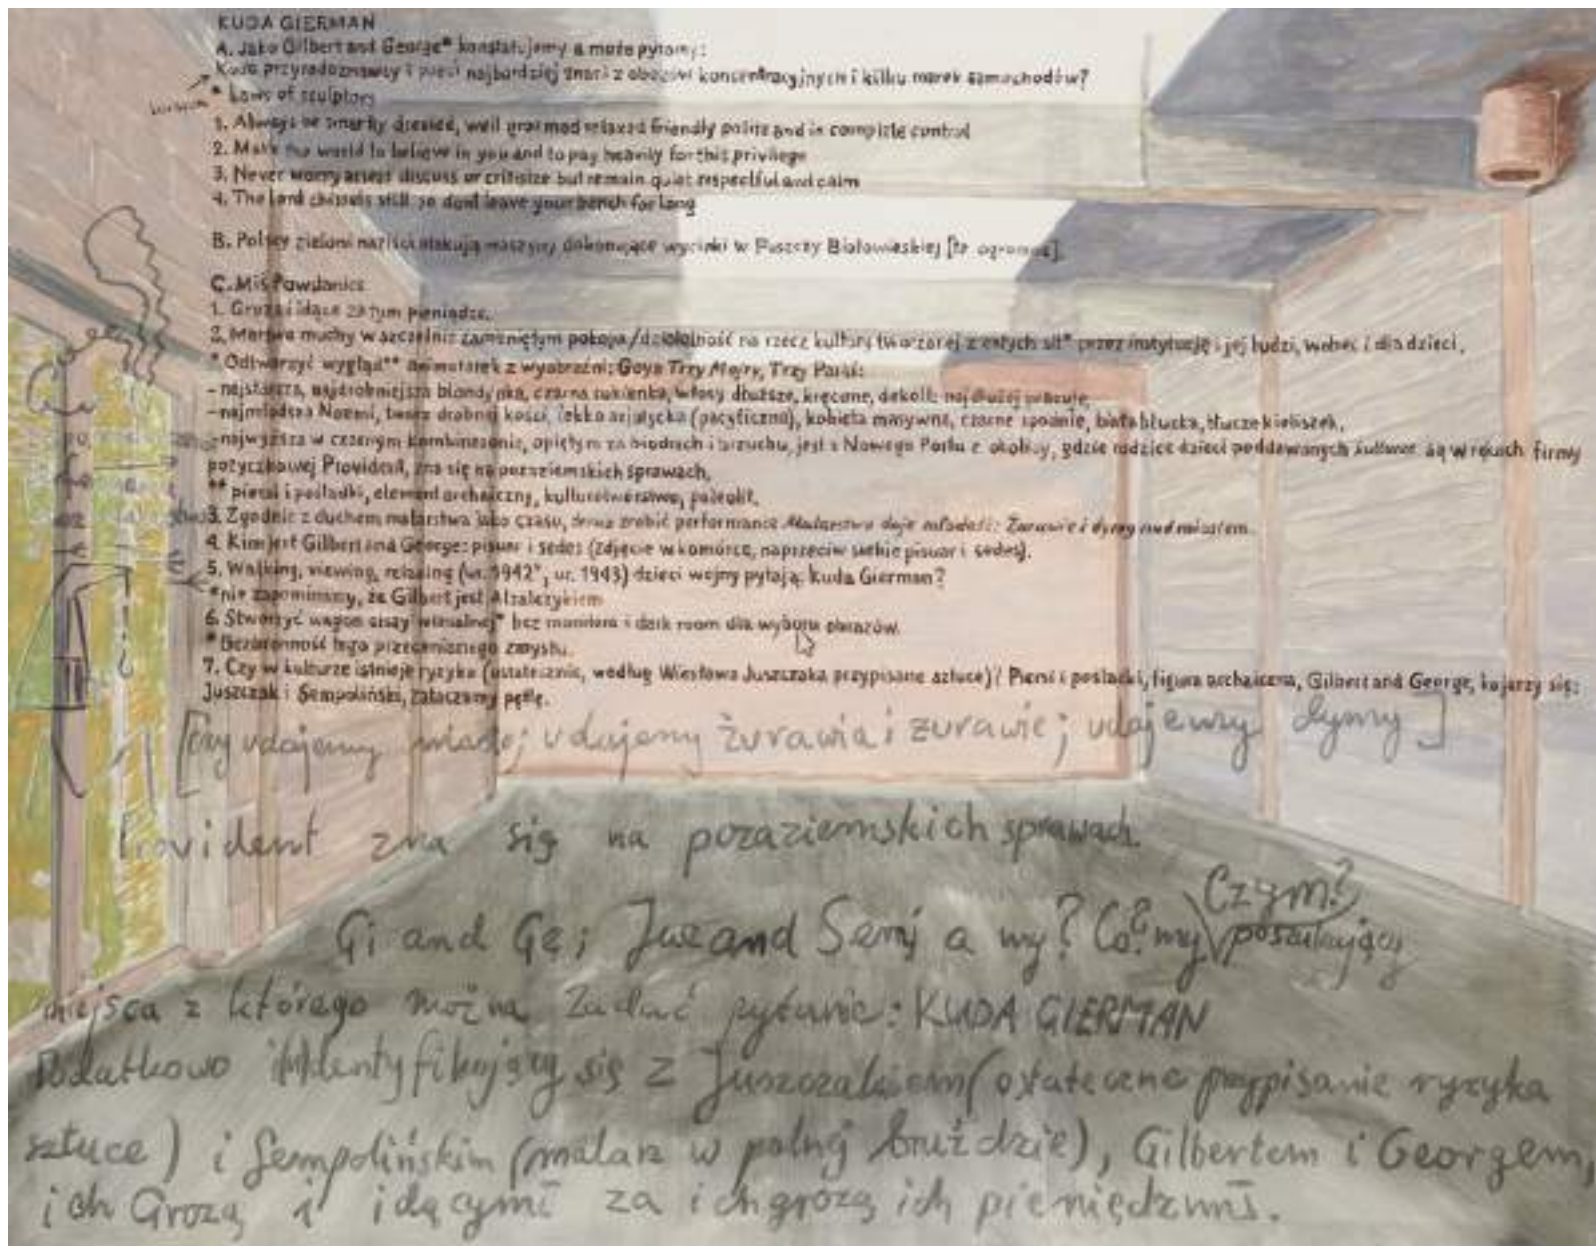 KUDA GIERMAN
A. Jako Gilbert and George* konstatujemy a może pytamy:
Kuda przyrodoznawcy i poeci najbardziej znani z obozów koncentracyjnych i kilku marek samochodów?
* Laws of sculptors
1. Always be smartly dressed, well groomed relaxed friendly polite and in complete control
2. Make the world to believe in you and to pay heavily for this privilege
3. Never worry assess discuss or critisize but remain quiet respectful and calm
4. The Lord chissels still so dont leave your bench for long
B. Polscy zieloni naziści atakują maszyny dokonujące wycinki w Puszczy Białowieskiej
C. Miś Powstaniec
1. Groza i idące za tym pieniądze.
2. Martwe muchy w szczelnie zamkniętym pokoju/działalność na rzecz kultury tworzonej z całych sił* przez instytucję i jej ludzi, wobec i dla dzieci.
* Odtworzyć wygląd** animatorek z wyobraźni: Goya Trzy Mojry, Trzy Parki:
- najstarsza, najdrobniejsza blondynka, czarna sukienka, włosy dłuższe, kręcone, dekolt: najdłużej pracuje,
- najmłodsza Noemi, twarz drobnej kości, lekko azjatycka (pacyficzna), kobieta masywna, czarne spodnie, biała bluzka, tłucze kieliszek,
- najwyższa w czarnym kombinezonie, opiętym na biodrach i brzuchu, jest z Nowego Portu z okolicy, gdzie rodzice dzieci poddawanych kulturze są w rękach firmy
pożyczkowej Provident, zna się na pozaziemskich sprawach,
** piersi i pośladki, element archaiczny, kulturotwórstwo, paleolit.
3. Zgodnie z duchem malarstwa jako czasu, zrobić performance Malarstwo daje młodość: Żurawie i dymy nad miastem.
4. Kim jest Gilbert and George: pisuar i sedes (zdjęcie w komórce, naprzeciw siebie pisuar i sedes).
5. Walking, viewing, relaxing (ur. 1942*, ur. 1943) dzieci wojny pytają: kuda Gierman?
*nie zapominamy, że Gilbert jest
6. Stworzyć wagon ciszy wizualnej* bez monitora i dark room dla wyboru obrazów.
* Bezbronność tego przecenionego zmysłu.
7. Czy w kulturze istnieje ryzyko (ostatecznie, według Wiesława Juszczaka przypisane sztuce)? Piersi i pośladki, figura archaiczna, Gilbert and George, kojarzy się:
Juszczak i Sempoliński, zataczamy pętlę.
[czy udajemy udajemy żurawia i żurawie; udajemy dymy]
Provident zna się na pozaziemskich sprawach.
Czym?
Gi and Ge; Jusz and Semp a my? Co? my poszukujący
miejsca z którego można zadać pytanie: KUDA GIERMAN
Dodatkowo identyfikujący się z Juszczakiem (ostateczne przypisanie ryzyka
sztuce) i Sempolińskim (malarz w polnej bruździe), Gilbertem i Georgem,
ich Grozą i idącymi za ich grozą ich pieniędzmi.